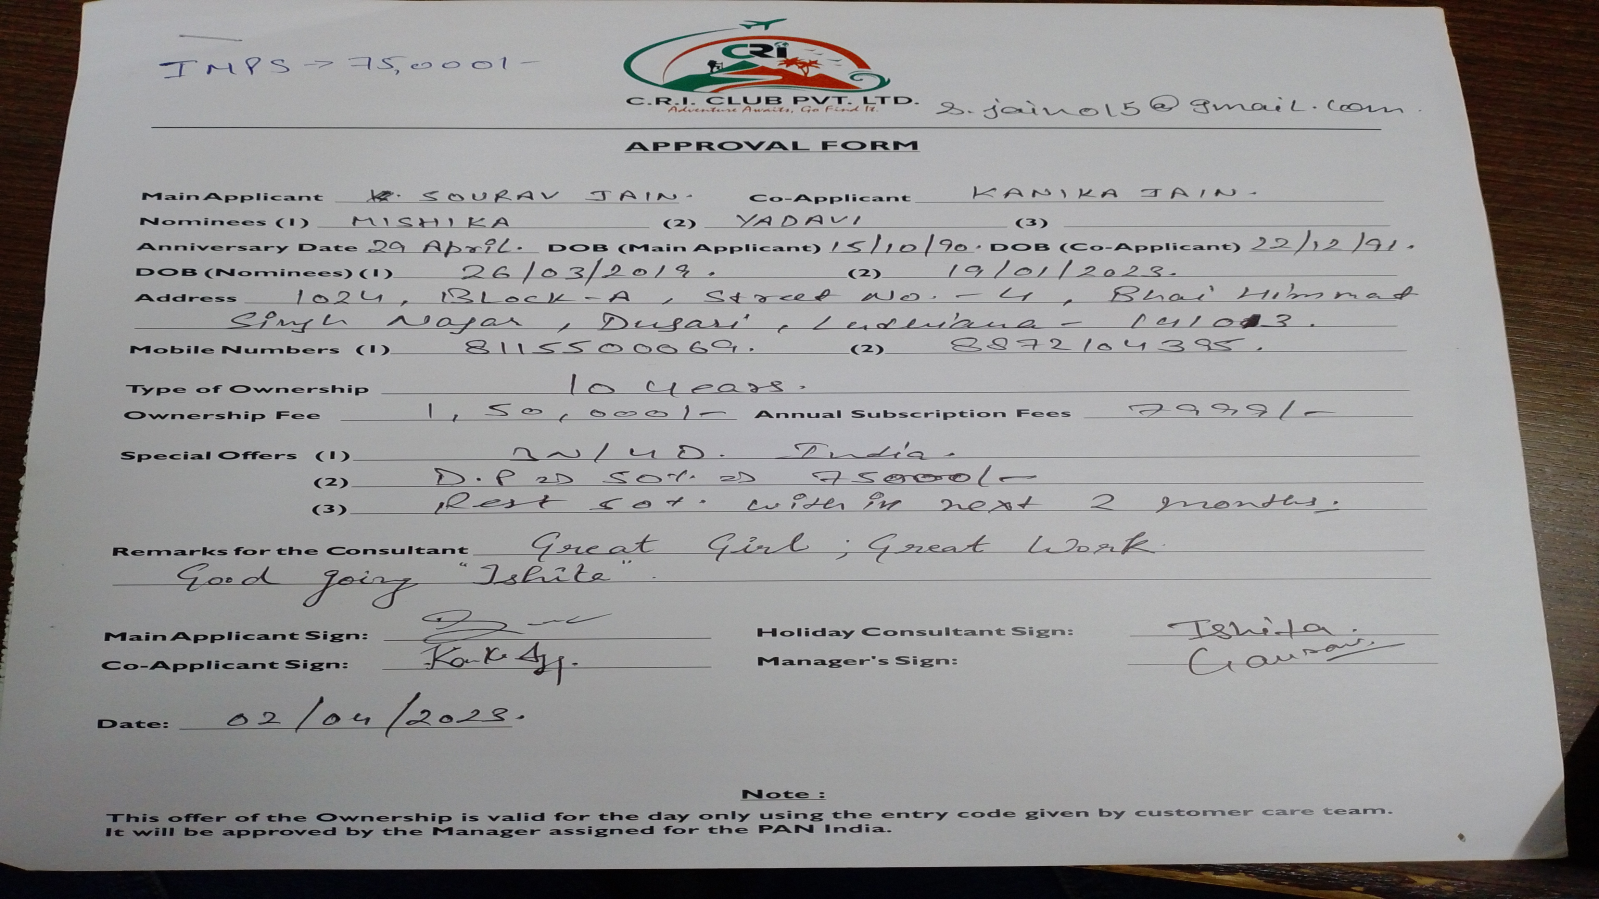 IMPS → 75,000/-
CRI
C.R.I. CLUB PVT. LTD.
Adventure Awaits, Go Find It.
s.jain015@gmail.com
APPROVAL FORM
Main Applicant SOURAV JAIN. Co-Applicant KANIKA JAIN.
Nominees (1) MISHIKA (2) YADAVI (3)
Anniversary Date 29 April. DOB (Main Applicant) 15/10/90. DOB (Co-Applicant) 22/12/91.
DOB (Nominees) (1) 26/03/2019. (2) 19/01/2023.
Address 1024, Block-A, Street No.-4, Bhai Himmat
Singh Nagar, Dugari, Ludhiana - 141013.
Mobile Numbers (1) 8115500069. (2) 8872104395.
Type of Ownership 10 Years.
Ownership Fee 1,50,000/- Annual Subscription Fees 7999/-
Special Offers (1) 3N/4D. India.
(2) D.P => 50% => 75000/-
(3) Rest 50% with in next 2 months.
Remarks for the Consultant Great Girl; Great Work
Good going "Ishita".
Main Applicant Sign: Holiday Consultant Sign: Ishita.
Co-Applicant Sign: Manager's Sign: Gaurav.
Date: 02/04/2023.
Note :
This offer of the Ownership is valid for the day only using the entry code given by customer care team.
It will be approved by the Manager assigned for the PAN India.